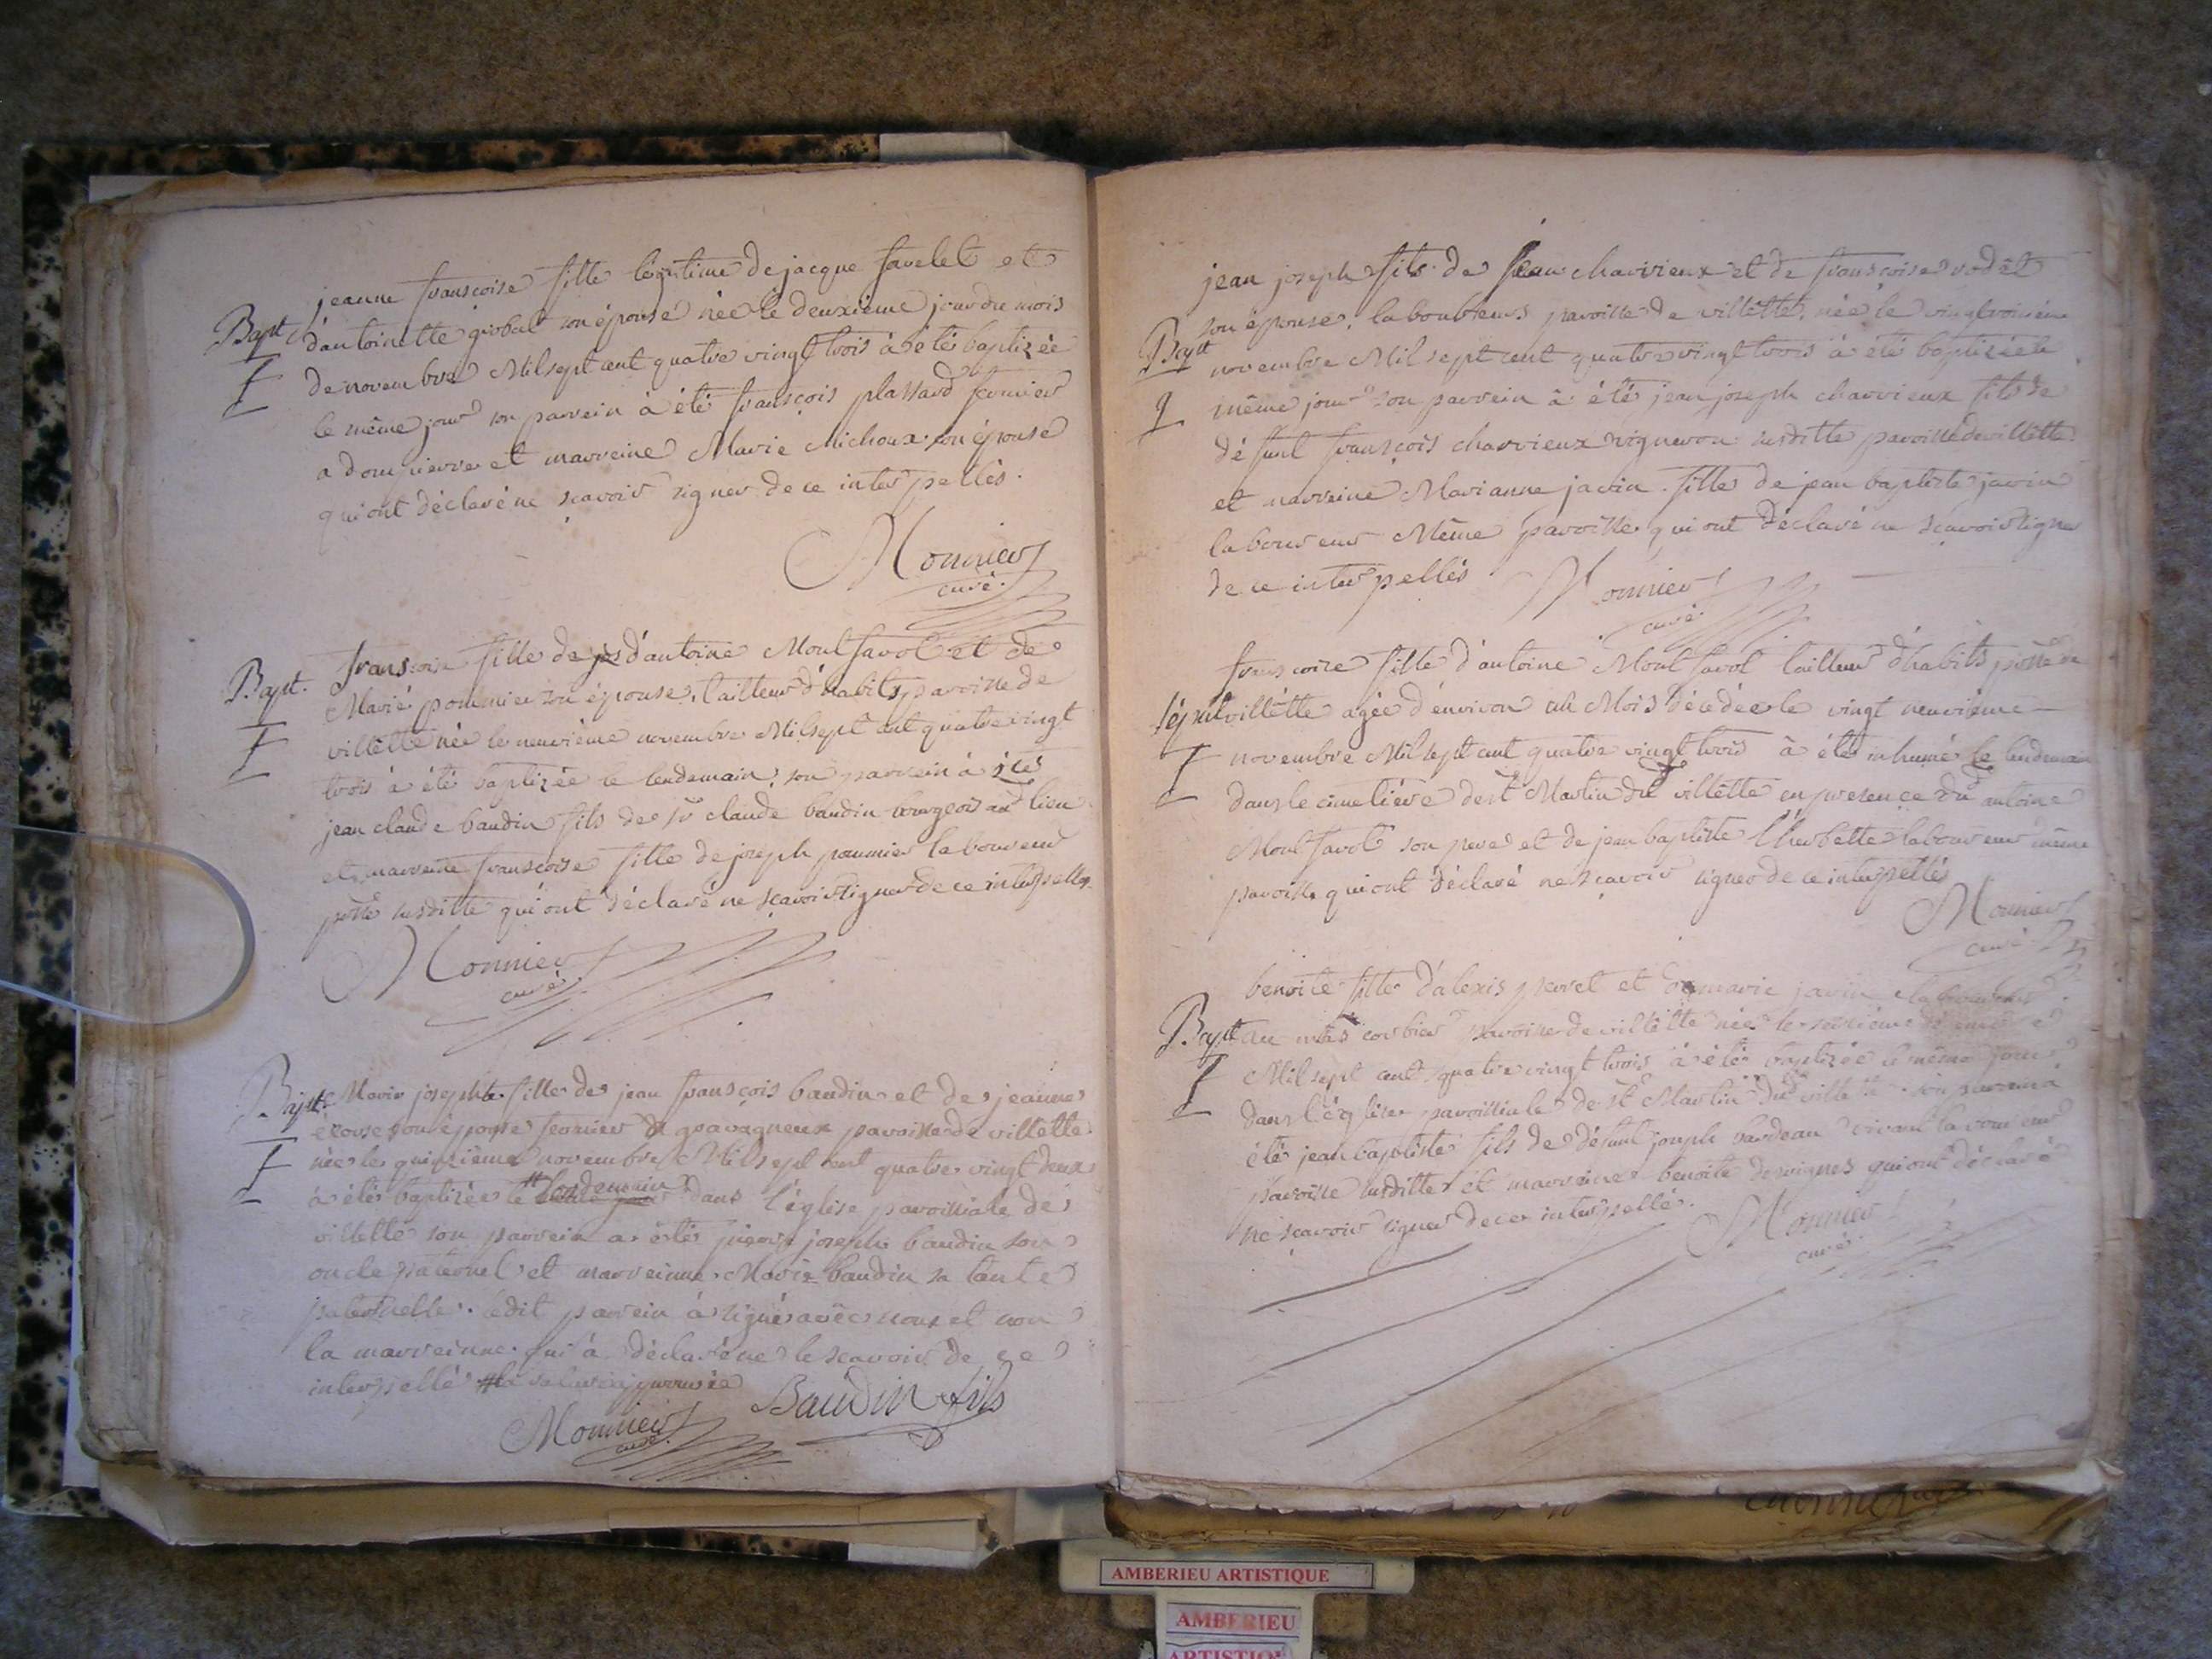 jeanne fransçoise fille légitime de jacque favelet et
Bapt d'antoinette grobat son épouse née le deuxième jour du mois
de novembre Mil sept cent quatre vingt trois à été baptizée
le même jour son parrein à été fransçois plattard fermier
a dompierre et marreine Marie Michoux son épouse
qui ont déclaré ne sçavoir signer de ce interpellés.
Monnier
curé
Bapt. fransçoise fille de d'antoine Montfavol et de
Marie pommier son épouse, tailleur d'habits paroisse de
villette née le neuvième novembre Mil sept cent quatre vingt
trois à été baptizée le lendemain, son parrein à été
jean claude baudin fils de sr claude baudin bourgeois aud lieu
et marreine fransçoise fille de joseph pommier laboureur
psse susditte qui ont déclaré ne sçavoir signer de ce interpellés
Monnier
curé
Bapt. Marie josephte fille de jean fransçois baudin et de jeanne
son épouse fermier paroisse de villette
née le quinzième novembre Mil sept cent quatre vingt deux
à été baptizée le lendemain dans l'église paroissiale de
villette son parrein a été pierre joseph baudin son
oncle paternel et marreinne Marie baudin sa tante
paternelle. ledit parrein à signé avec nous et non
la marreinne qui à déclaré ne le sçavoir de ce
interpellé
Baudin fils
Monnier
curé
jean joseph fils de jean charvieux et de fransçoise rodet
Bapt son épouse, laboureurs paroisse de villette, née le vingtroisième
novembre Mil sept cent quatre vingt trois à été baptizée le
même jour son parrein à été jean joseph charvieux fils de
défunt fransçois charvieux vigneron susditte paroisse de villette
et marreine Marianne javin fille de jean baptiste javin
laboureur Même paroisse qui ont déclaré ne sçavoir signer
de ce interpellés
Monnier
curé
fransçoise fille d'antoine Montfavol tailleur d'habits psse de
sépul villette agée d'environ un Mois décédée le vingt neuvième
novembre Mil sept cent quatre vingt trois à été inhumé le lendemain
dans le cimetière de st Martin du villette en presence dud antoine
Montfavol son pere et de jean baptiste l'herbette laboureur même
paroisse qui ont déclaré ne sçavoir signer de ce interpellés
Monnier
curé
benoite fille d'alexis perret et de marie javin laboureur
Bapt au mas corbier paroisse de villette née le décembre
Mil sept cent quatre vingt trois à été baptizée le même jour
dans l'église paroissiale de st Martin du villette son parrein à
été jean baptiste fils de défunt joseph bardeau vivant laboureur
paroisse susditte et marreine benoite desvignes qui ont déclaré
ne sçavoir signer de ce interpellé.
Monnier
curé
AMBERIEU ARTISTIQUE
AMBERIEU
ARTISTIQUE